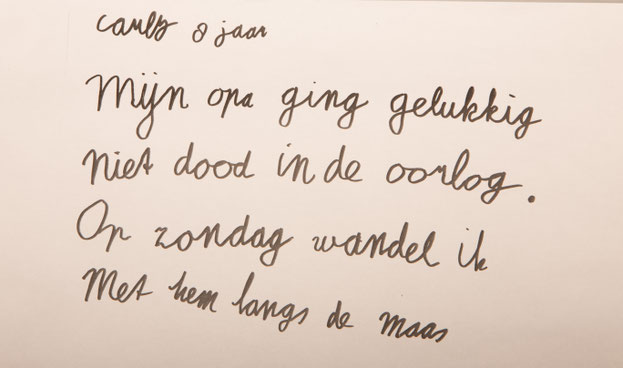 carly 8 jaar
Mijn opa ging gelukkig
niet dood in de oorlog.
Op zondag wandel ik
Met hem langs de maas